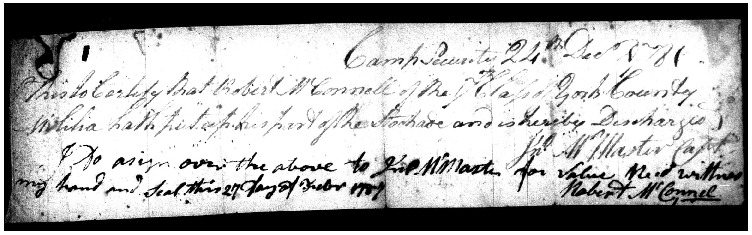 Camp Security 24th Decr 1781
This to Certify that Robert McConnell of the 7th Class of York County
Militia hath put up his part of the Stockade and is hereby Discharged
Jno McMaster Capt
I Do asign over the above to Jno McMaster for value Recd wittness
my hand and Seal this 27 Day of
Robert McConnel